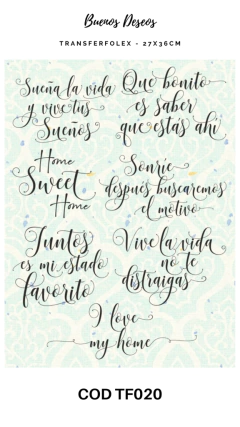 Buenos Deseos
TRANSFERFOLEX - 27X36CM
Sueña la vida
y vive tus
Sueños
Que bonito
es saber
que estás ahí
Home
Sweet
Home
Sonríe
después buscaremos
el motivo
Juntos
es mi estado
favorito
Vive la vida
no te
distraigas
I love
my home
COD TF020